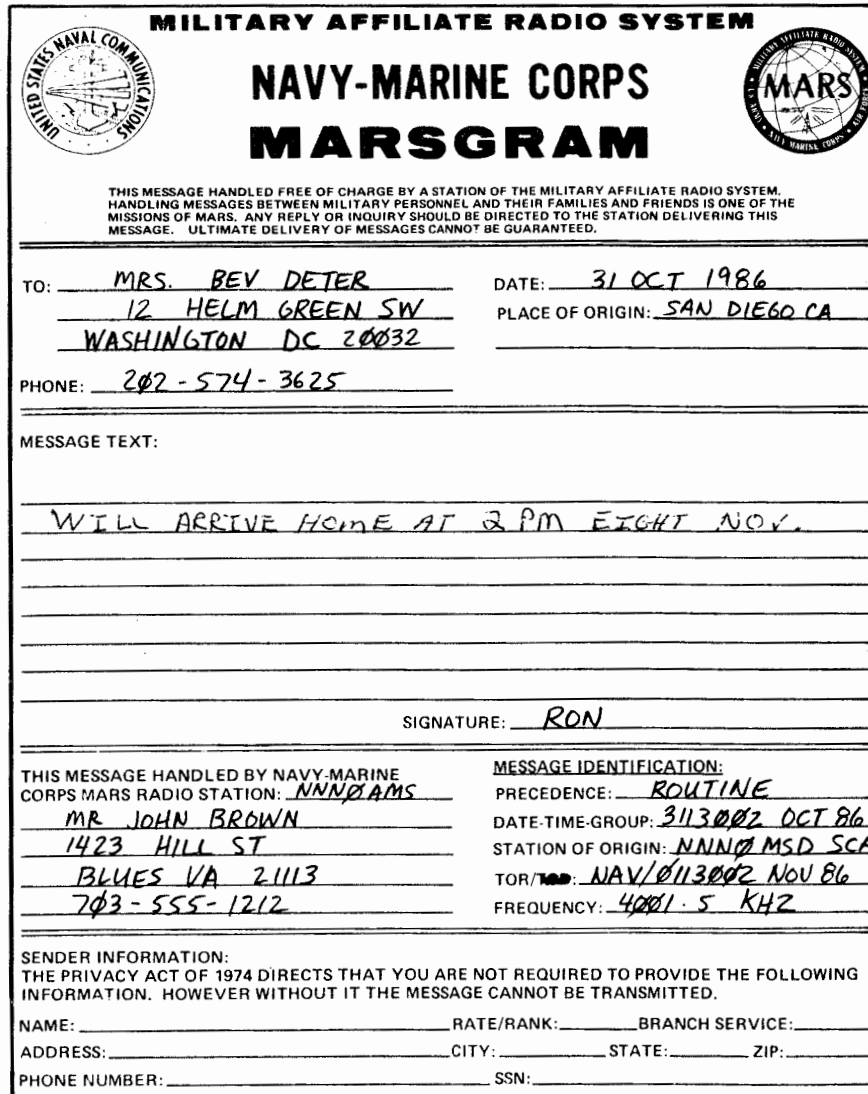 MILITARY AFFILIATE RADIO SYSTEM
UNITED STATES NAVAL COMMUNICATIONS
NAVY-MARINE CORPS
MARS
MARSGRAM
THIS MESSAGE HANDLED FREE OF CHARGE BY A STATION OF THE MILITARY AFFILIATE RADIO SYSTEM.
HANDLING MESSAGES BETWEEN MILITARY PERSONNEL AND THEIR FAMILIES AND FRIENDS IS ONE OF THE
MISSIONS OF MARS. ANY REPLY OR INQUIRY SHOULD BE DIRECTED TO THE STATION DELIVERING THIS
MESSAGE. ULTIMATE DELIVERY OF MESSAGES CANNOT BE GUARANTEED.
TO: MRS. BEV DETER
12 HELM GREEN SW
WASHINGTON DC 2ØØ32
PHONE: 2Ø2-574-3625
DATE: 31 OCT 1986
PLACE OF ORIGIN: SAN DIEGO CA
MESSAGE TEXT:
WILL ARRIVE HOME AT 2 PM EIGHT NOV.
SIGNATURE: RON
THIS MESSAGE HANDLED BY NAVY-MARINE
CORPS MARS RADIO STATION: NNNØAMS
MR JOHN BROWN
1423 HILL ST
BLUES VA 21113
7Ø3-555-1212
MESSAGE IDENTIFICATION:
PRECEDENCE: ROUTINE
DATE-TIME-GROUP: 3113ØØZ OCT 86
STATION OF ORIGIN: NNNØ MSD SCA
TOR/ NAV/Ø113ØØZ NOV 86
FREQUENCY: 4ØØ1.5 KHZ
SENDER INFORMATION:
THE PRIVACY ACT OF 1974 DIRECTS THAT YOU ARE NOT REQUIRED TO PROVIDE THE FOLLOWING
INFORMATION. HOWEVER WITHOUT IT THE MESSAGE CANNOT BE TRANSMITTED.
NAME: RATE/RANK: BRANCH SERVICE:
ADDRESS: CITY: STATE: ZIP:
PHONE NUMBER: SSN: